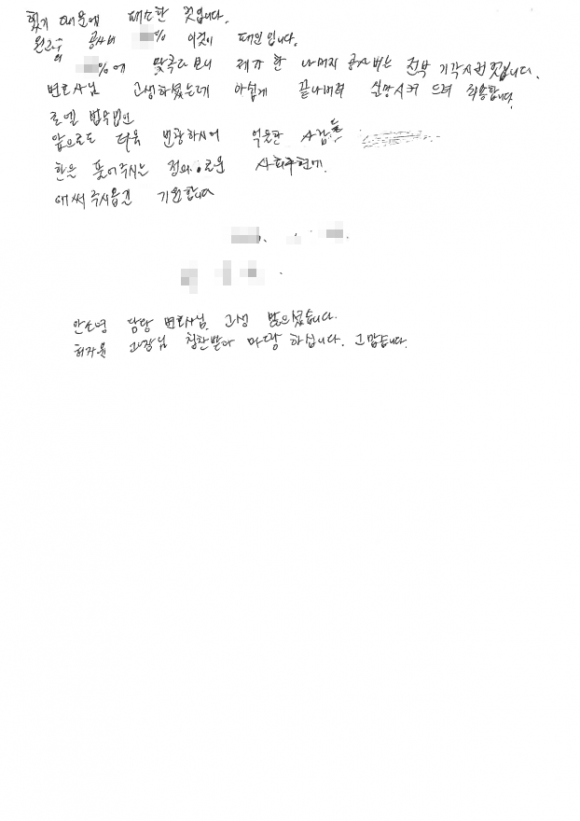 했기 때문에 패소한 것입니다.
원고의 공사비 % 이것이 패인입니다.
%에 맞추다 보니 제가 한 나머지 공사비는 전부 기각시킨 것입니다.
변호사님 고생하셨는데 아쉽게 끝나버려 실망시켜 드려 죄송합니다.
로엘 법무법인
앞으로도 더욱 번창하시어 억울한 사람들
한을 풀어주시는 정의로운 사회구현에
애써 주시옵길 기원합니다
안소영 담당 변호사님, 고생 많으셨습니다.
허자윤 과장님 칭찬받아 마땅 하십니다. 고맙습니다.